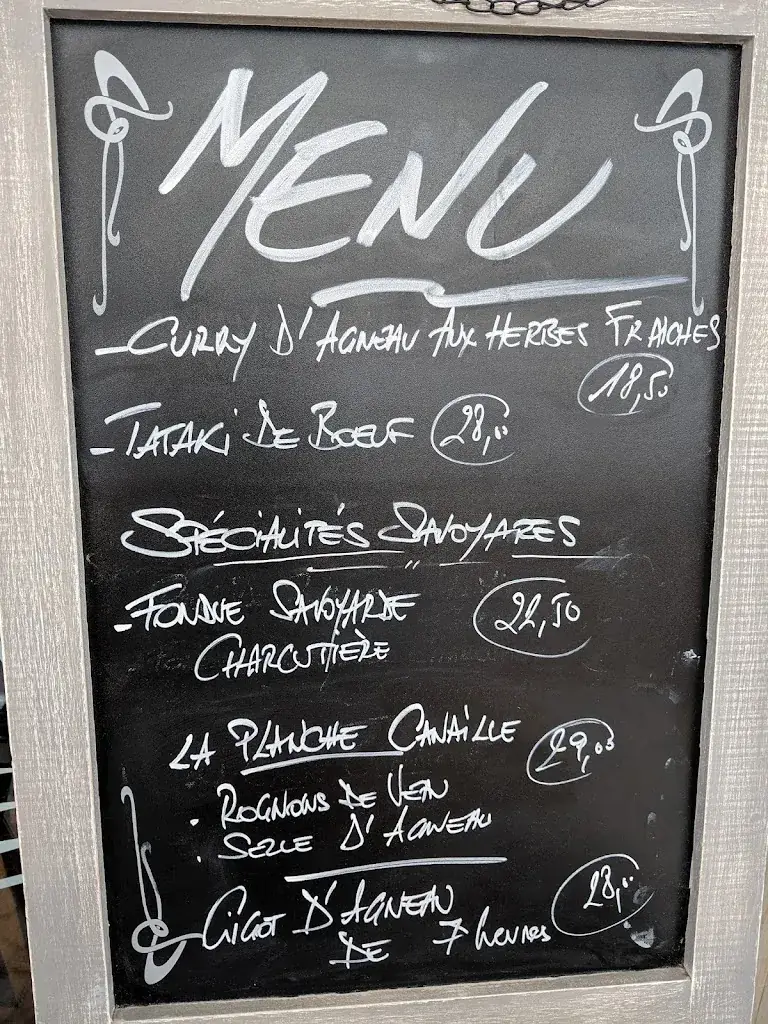 MENU
- CURRY D'AGNEAU AUX HERBES FRAICHES
18,50
- TATAKI DE BOEUF 28,00
SPÉCIALITÉS SAVOYARDES
- FONDUE SAVOYARDE 22,50
CHARCUTIÈRE
LA PLANCHE CANAILLE 29,00
. ROGNONS DE VEAU
. SELLE D'AGNEAU
GIGOT D'AGNEAU 28,00
DE 7 heures